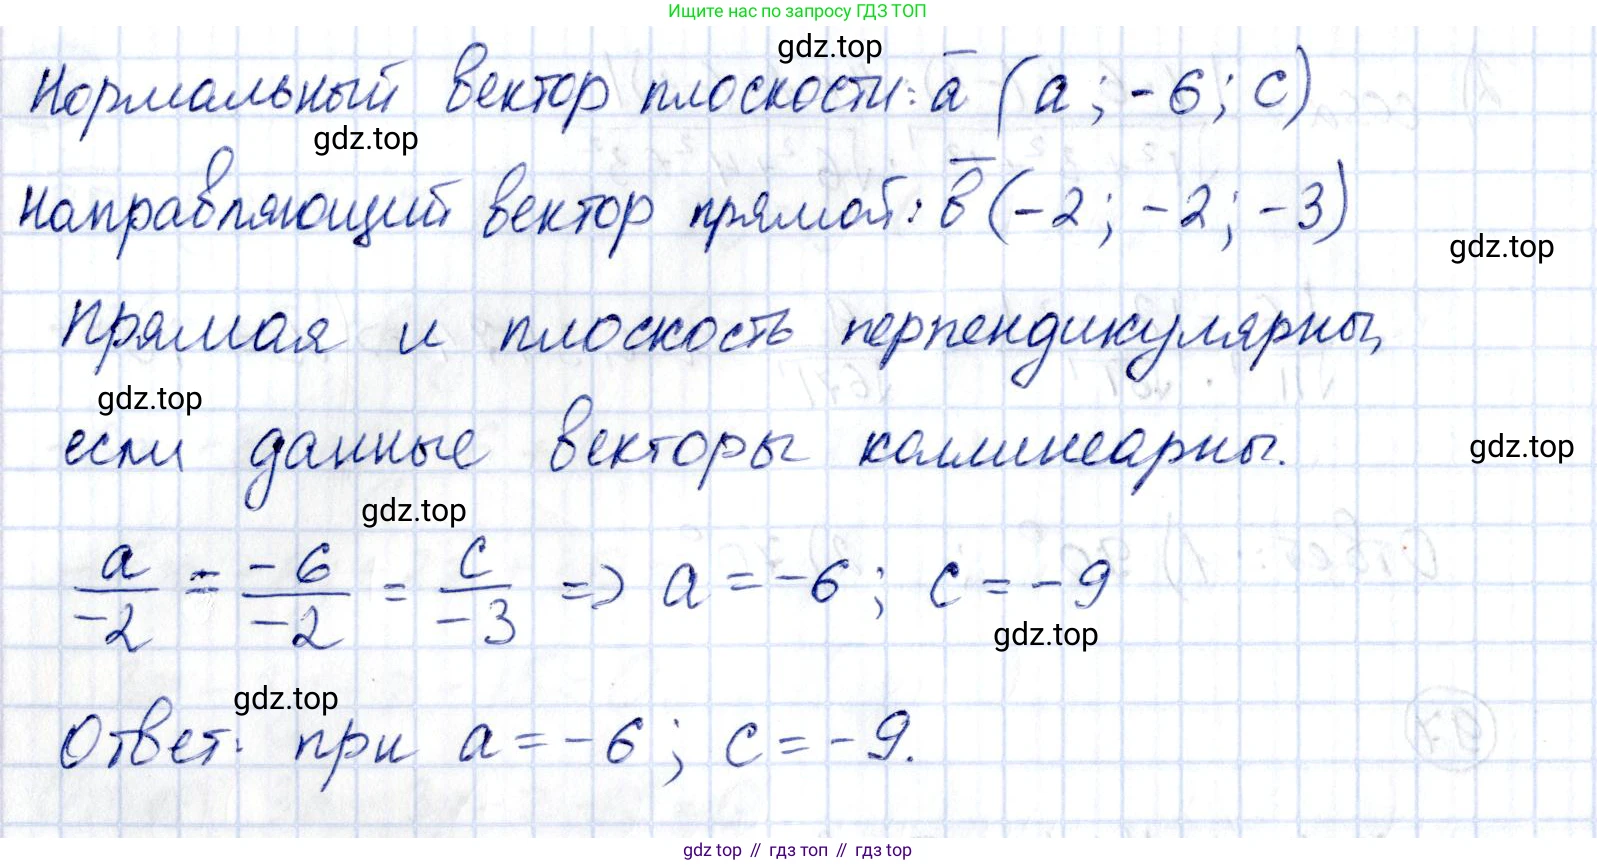 Ищите нас по запросу ГДЗ ТОП
gdz.top
Нормальный вектор плоскости: a̅ (a; -6; c)
gdz.top
Направляющий вектор прямой: b̅ (-2; -2; -3)
gdz.top
Прямая и плоскость перпендикулярны,
gdz.top
если данные векторы коллинеарны.
gdz.top
gdz.top
a/-2 = -6/-2 = c/-3 => a = -6; c = -9
gdz.top
gdz.top
Ответ: при a = -6; c = -9.
gdz top // гдз топ // gdz top